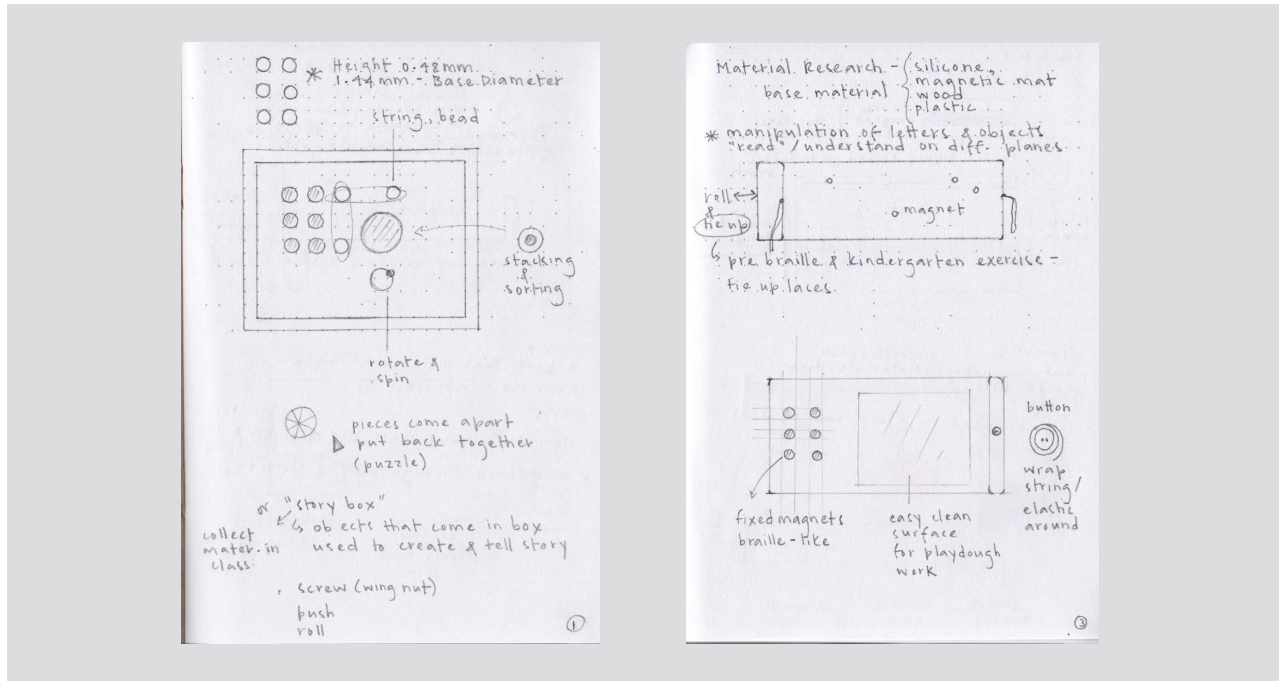 * Height 0.48mm.
1.44mm - Base Diameter
string, bead
stacking
&
sorting
rotate &
spin
pieces come apart
put back together
(puzzle)
or "story box"
↳ objects that come in box
used to create & tell story
collect
mater. in
class
screw (wing nut)
push
roll
1
Material Research -
base material
silicone,
magnetic mat
wood
plastic
* manipulation of letters & objects
"read"/understand on diff. planes.
roll
&
tie up
magnet
↳ pre braille & kindergarten exercise -
tie up laces.
button
wrap
string/
elastic
around
fixed magnets
braille-like
easy clean
surface
for playdough
work
3